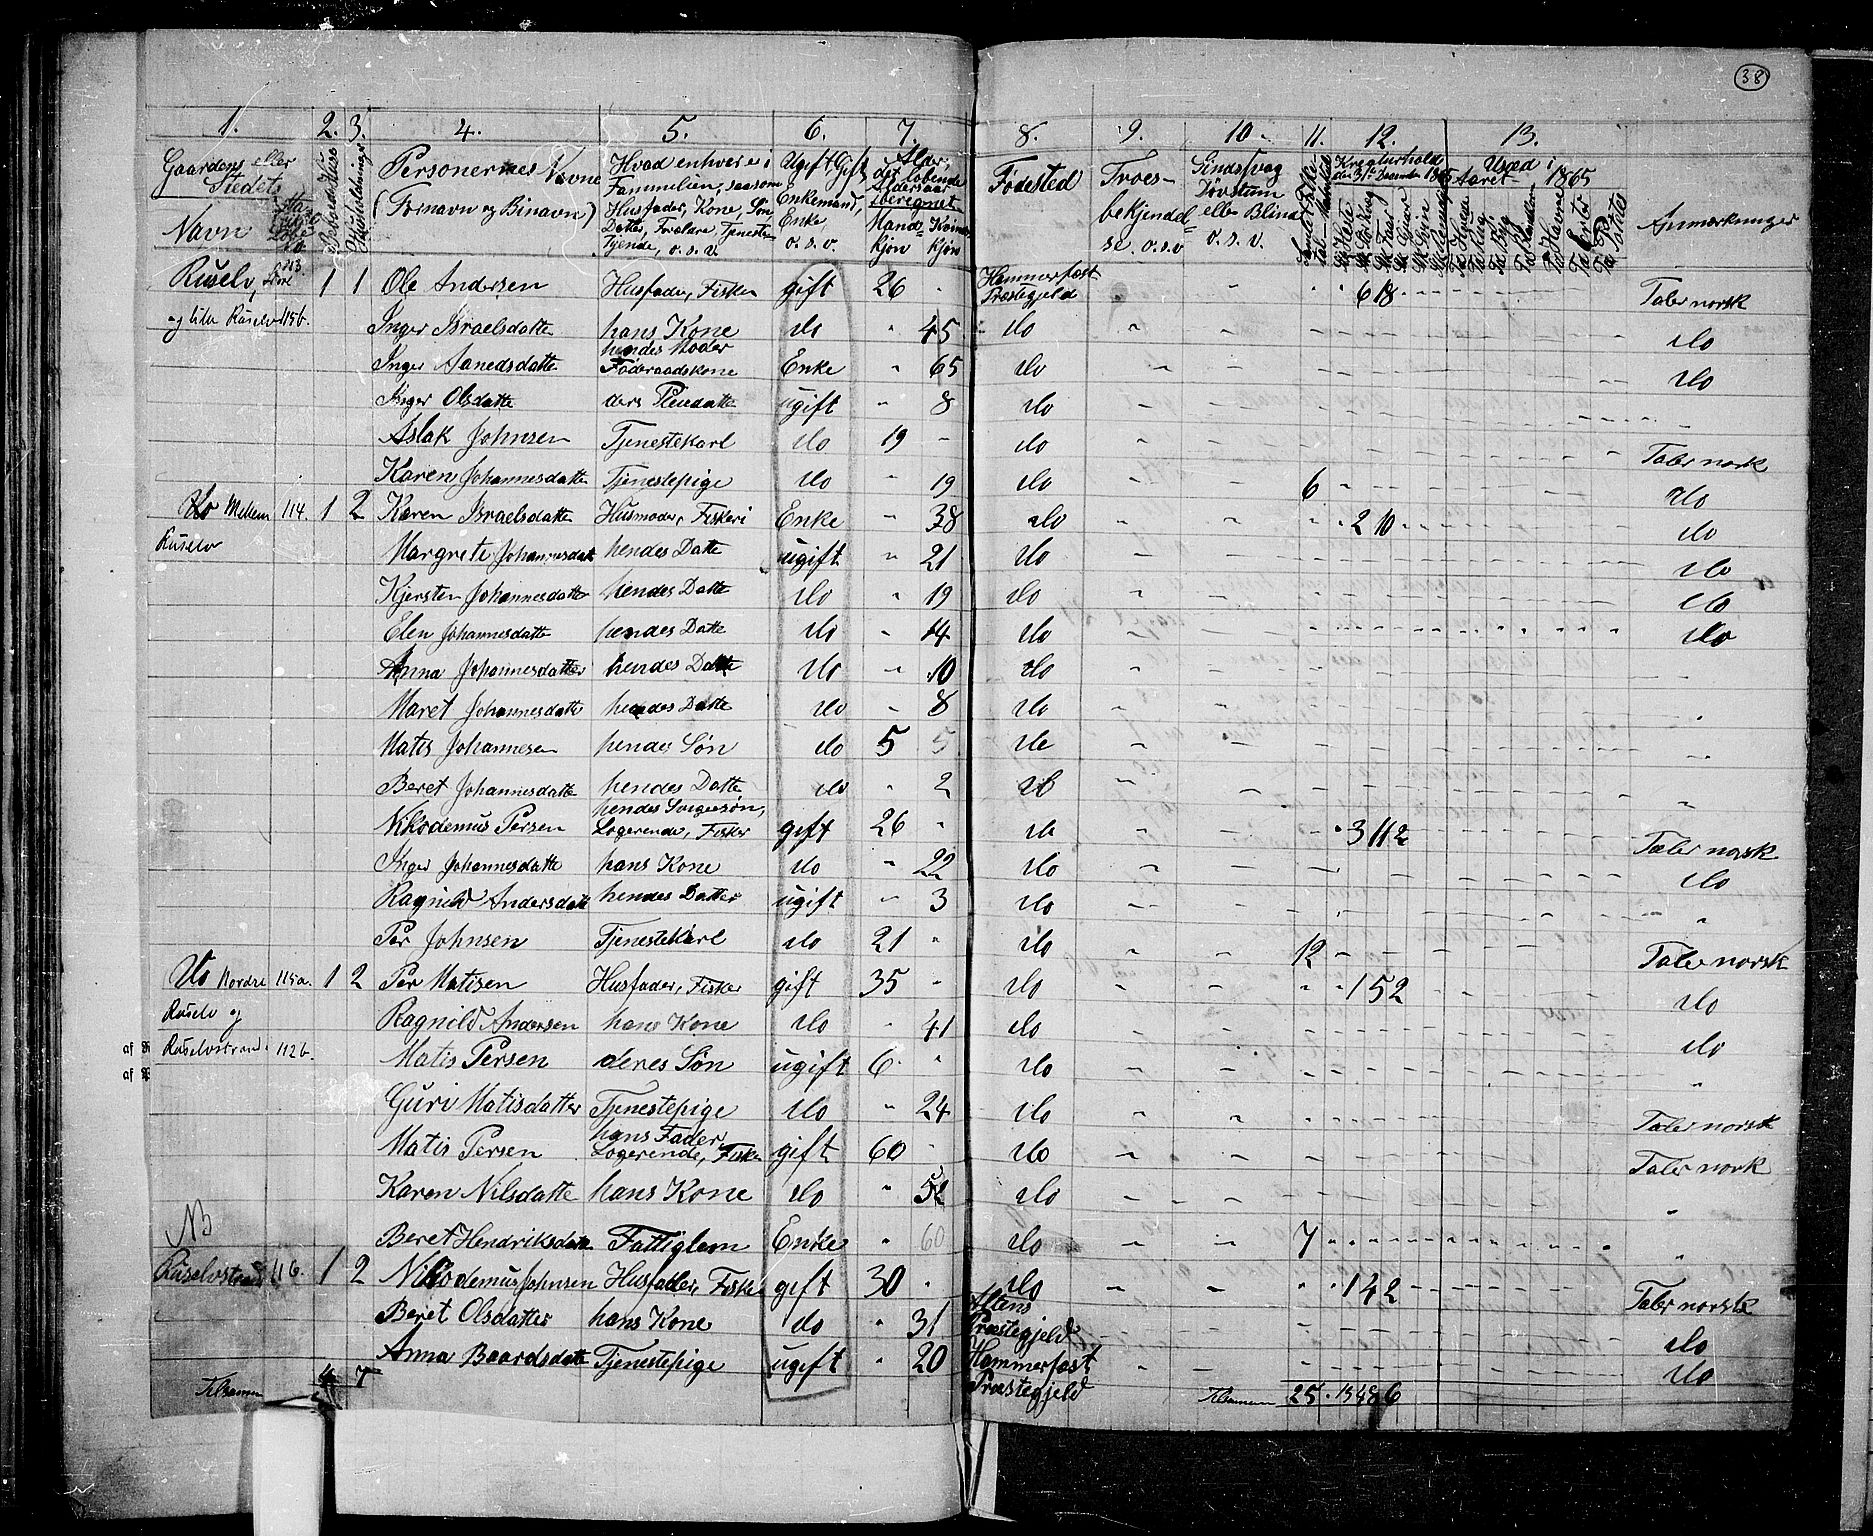 38
1. 2. 3. 4. 5. 6. 7. 8. 9. 10. 11. 12. 13.
Gaardens eller Stedets Navn
Beboede Huse
Huusholdninger
Personernes Navne (Fornavn og Binavn)
Hvad enhver er i Fammilien, saasom Husfader, Kone, Søn, Datter, Forældre, Tjeneste-Tyende, o.s.v.
Ugift Gift Enkemand, Enke o.s.v.
Alder det løbende Aldersaar iberegnet
Mand-kjøn Kvinde-kjøn
Fødested
Troes-bekjendelse o.s.v
Sindssvag Døvstum eller Blind o.s.v.
Kreaturhold den 31te December 1865
Udsæd i Aaret 1865
Anmærkninger
Ruselv 1 1 Ole Andersen Husfader, Fisker gift 26 " Hammerfest Præstegjeld 6 18 Taler norsk
og lille Ruselv 115b. Inger Israelsdatte hans Kone do " 45 do do
Inger Aanedsdatte hendes Moder Føderaadskone Enke " 65 do do
Inger Olsdatte ders Pleiedatte ugift " 8 do
Aslak Johnsen Tjenestekarl do 19 " do Taler norsk
Karen Johannesdatte Tjenestepige do " 19 do 6 do
do Mellem Ruselv 114. 1 2 Karen Israelsdatte Husmoder, Fiskeri Enke " 38 do 2 10 do
Margrete Johannesdatt hendes Datte ugift " 21 do do
Kjersten Johannesdatter hendes Datte do " 19 do do
Elen Johannesdatte hendes Datte do " 14 do do
Anna Johannesdatter hendes Datte do " 10 do
Maret Johannesdatte hendes Datte do " 8 do "
Matis Johannesen hendes Søn do 5 5 do "
Beret Johannesdatte hendes Datte do " 2 do "
Nikodemus Persen hendes Svigersøn, Logerende, Fisker gift 26 " do 3 11 2 Taler norsk
Inger Johannesdatte hans Kone do " 22 do do
Ragnild Andersdatt hendes Datter ugift " 3 do "
Per Johnsen Tjenestekarl do 21 " do 12 Taler norsk
do Nordre Ruselv og 115a. 1 2 Per Matisen Husfader, Fisker gift 35 " do 1 5 2 do
Ragnild Andersen hans Kone do " 41 do do
Ruselvstrand 112b. Matis Persen deres Søn ugift 6 " do "
Guri Matisdatter Tjenestepige do " 24 do Taler norsk
Matis Persen hans Fader, Logerende, Fisker gift 60 " do Taler norsk
Karen Nilsdatte hans Kone do " 52 do "
NB
Beret Hendriksdatte Fattiglem Enke " 60 do 7 "
Ruselvstrand 116. 1 2 Nikodemus Johnsen Husfader, Fisker gift 30 " do 1 4 2 Taler norsk
Beret Olsdatter hans Kone do " 31 Altens Præstegjeld do
Anna Baardsdatte Tjenestepige ugift " 20 Hammerfest Præstegjeld do
Tilsammen 4 7 Tilsammen 25 13 48 6